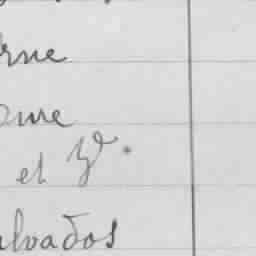 rne
ome
et V.
alvados